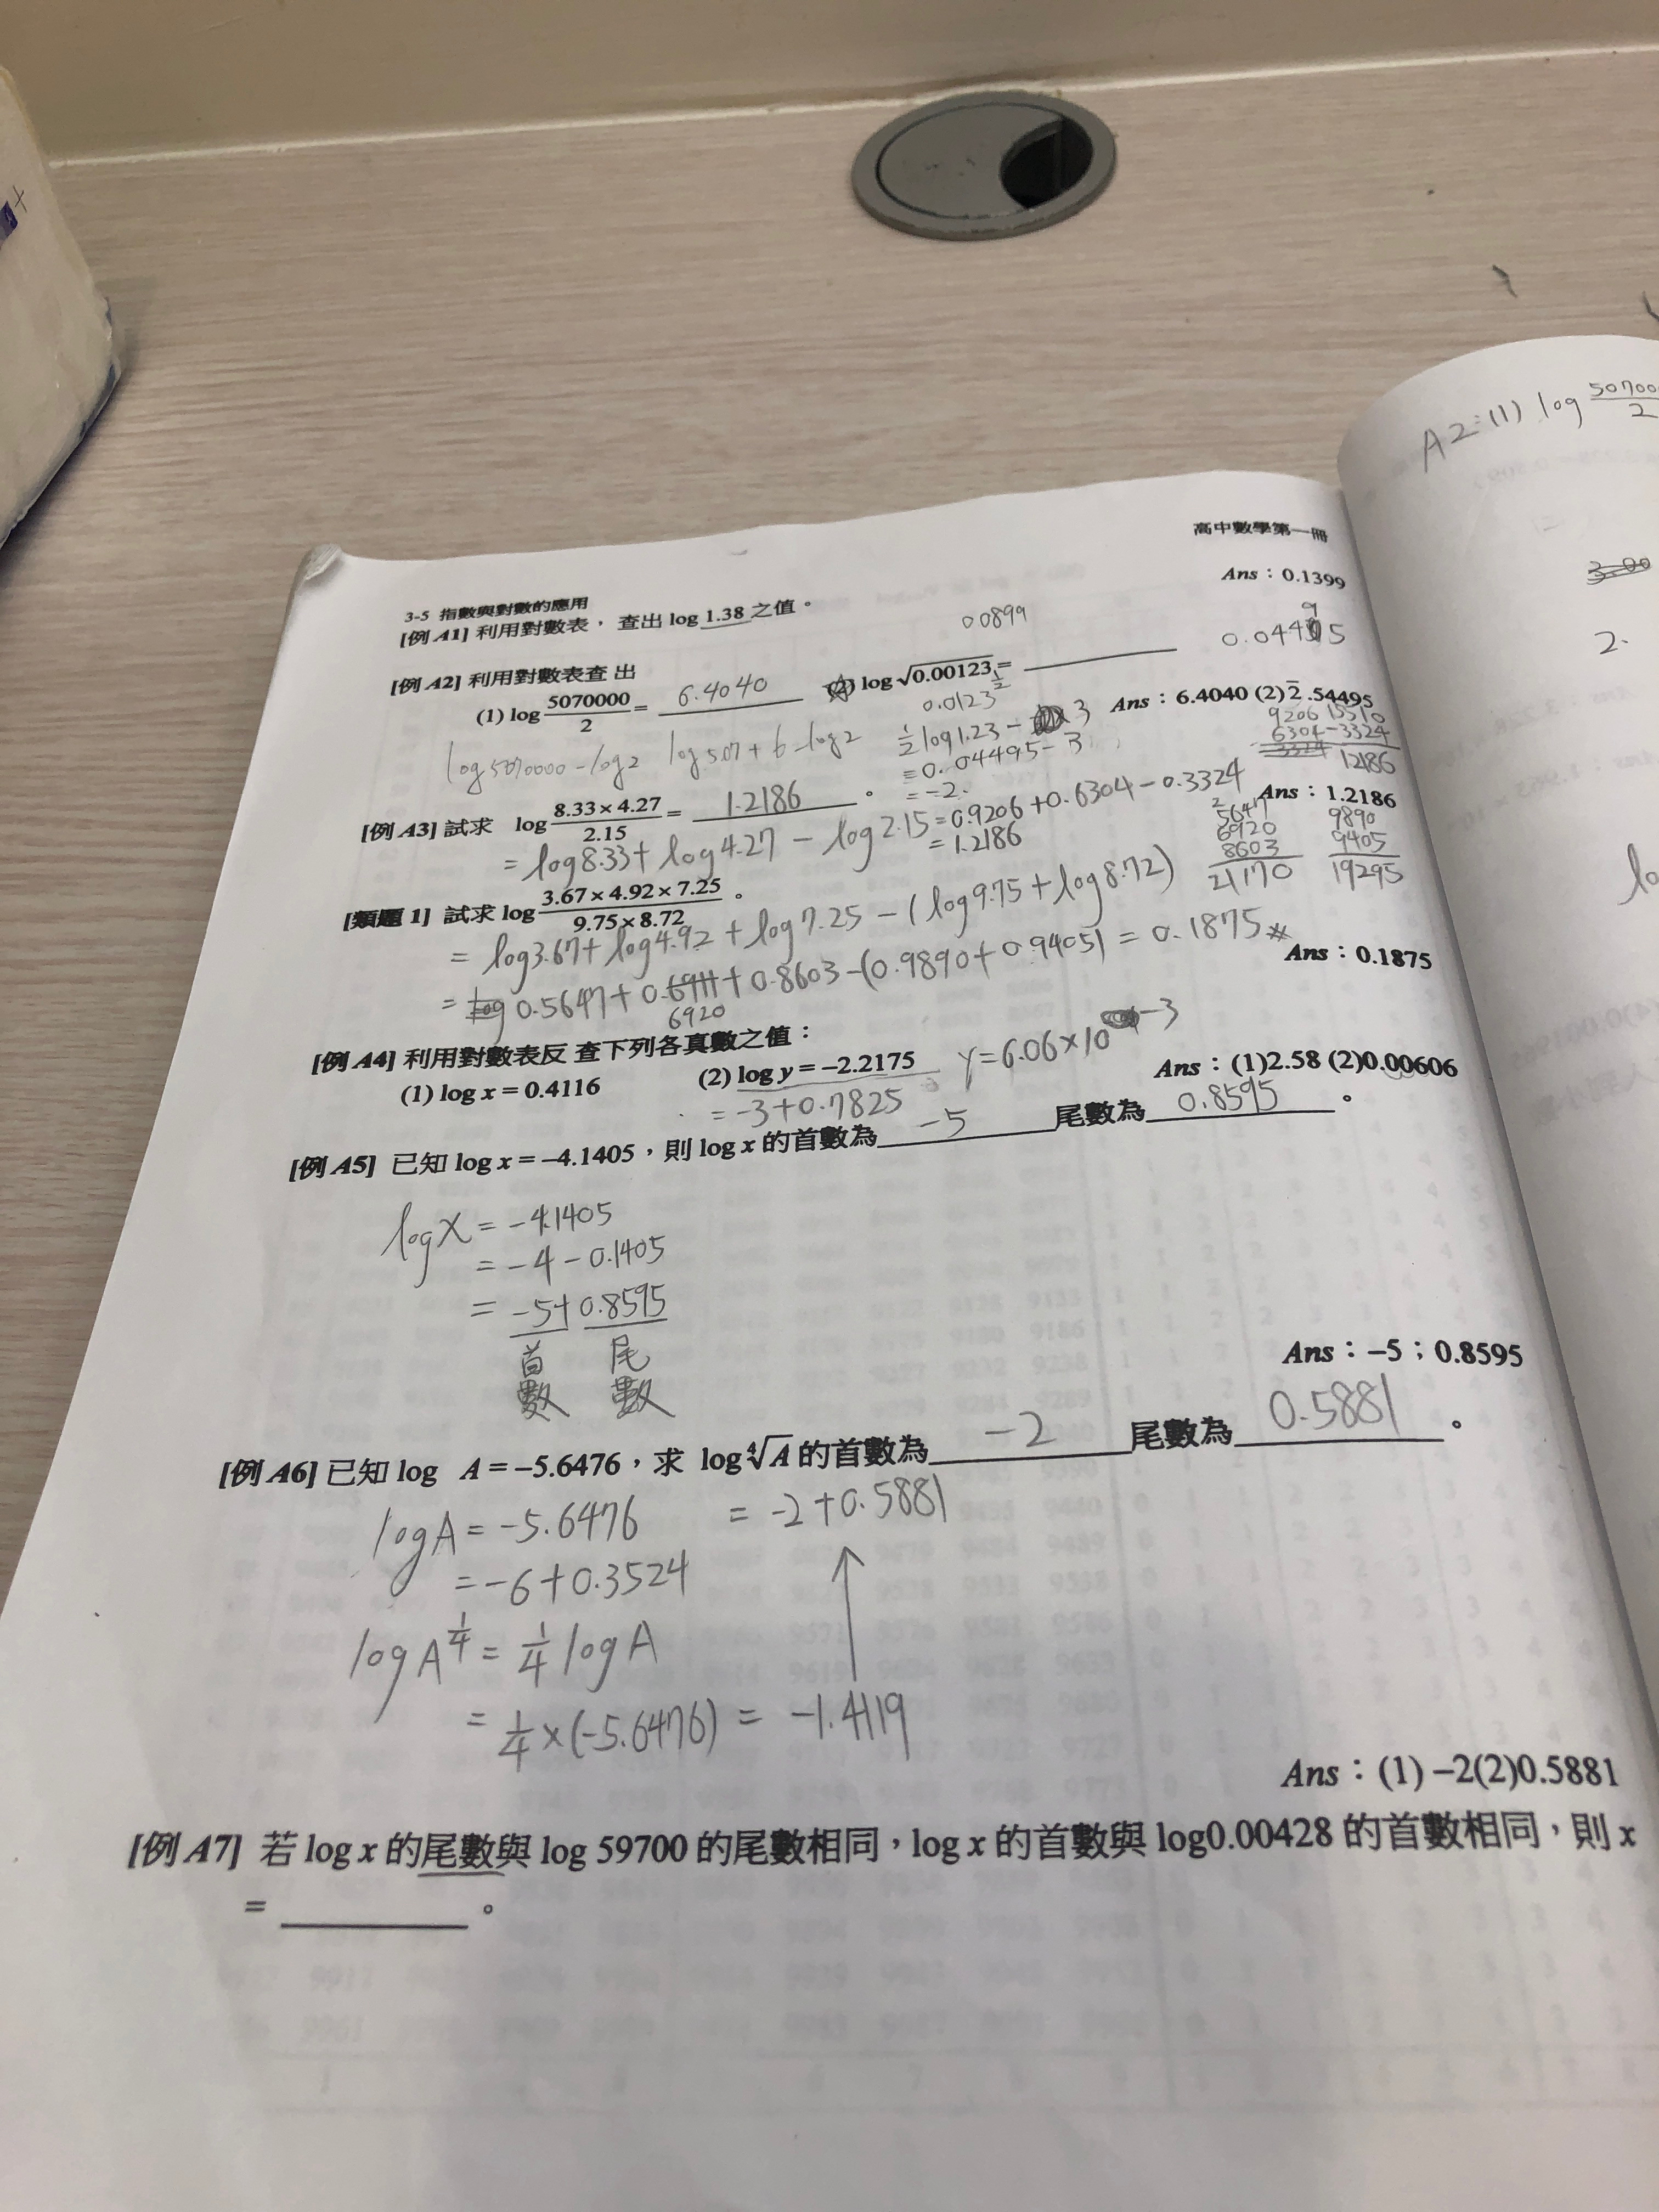 高中數學第一冊
3-5 指數與對數的應用
Ans：0.1399
[例 A1] 利用對數表， 查出 log 1.38 之值。
0.0899
0.04495
[例 A2] 利用對數表查 出
(1) log 5070000/2 = 6.4040 (2) log √0.00123 =
Ans：6.4040 (2) 2̄ .54495
0.0123 1/2
log 5070000 - log 2 log 5.07 + 6 - log 2
1/2 log 1.23 - 3
= 0.04495 - 3
= -2.
9206 15510
6304 -3324
3324 12186
[例 A3] 試求 log 8.33 × 4.27/2.15 = 1.2186 。
Ans：1.2186
= log 8.33 + log 4.27 - log 2.15 = 0.9206 + 0.6304 - 0.3324
= 1.2186
5647 9890
6920 9405
8603 19295
21170
[類題 1] 試求 log 3.67 × 4.92 × 7.25/9.75 × 8.72 。
= log 3.67 + log 4.92 + log 7.25 - (log 9.75 + log 8.72)
= log 0.5647 + 0.6911 + 0.8603 - (0.9890 + 0.9405) = 0.1875
6920
Ans：0.1875
[例 A4] 利用對數表反 查下列各真數之值：
(1) log x = 0.4116 (2) log y = –2.2175 y = 6.06 × 10 -3
Ans：(1)2.58 (2)0.00606
= -3 + 0.7825
[例 A5] 已知 log x = –4.1405，則 log x 的首數為 -5 尾數為 0.8595 。
log x = -4.1405
= -4 - 0.1405
= -5 + 0.8595
首數 尾數
Ans：–5；0.8595
[例 A6] 已知 log A = –5.6476，求 log ⁴√A 的首數為 -2 尾數為 0.5881 。
log A = -5.6476 = -2 + 0.5881
= -6 + 0.3524
log A 1/4 = 1/4 log A
= 1/4 × (-5.6476) = -1.4119
Ans：(1) –2(2)0.5881
[例 A7] 若 log x 的尾數與 log 59700 的尾數相同，log x 的首數與 log0.00428 的首數相同，則 x
= 。
A2:(1) log 50700
2
3.00
2.
lo